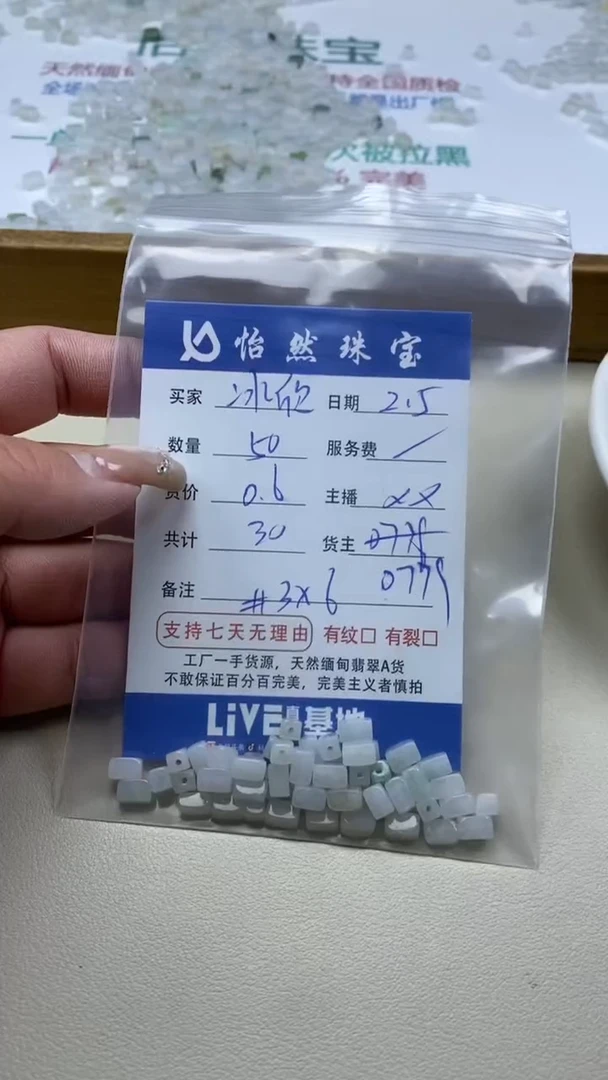 珠宝
天然缅甸
持全国质检
全场
是出厂价
次被拉黑
完美
怡然珠宝
买家 冰欣 日期 2.5
数量 50 服务费 /
货价 0.6 主播 XX
共计 30 货主 0775
0779
备注 #3X6
支持七天无理由 有纹□ 有裂□
工厂一手货源，天然缅甸翡翠A货
不敢保证百分百完美，完美主义者慎拍
LiVE 基地